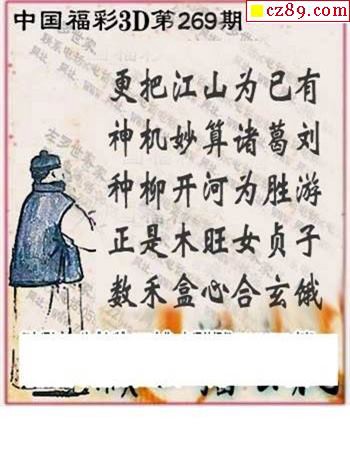 cz89.com
中国福彩3D第269期
更把江山为已有
神机妙算诸葛刘
种柳开河为胜游
正是木旺女贞子
数禾盒心合玄饿